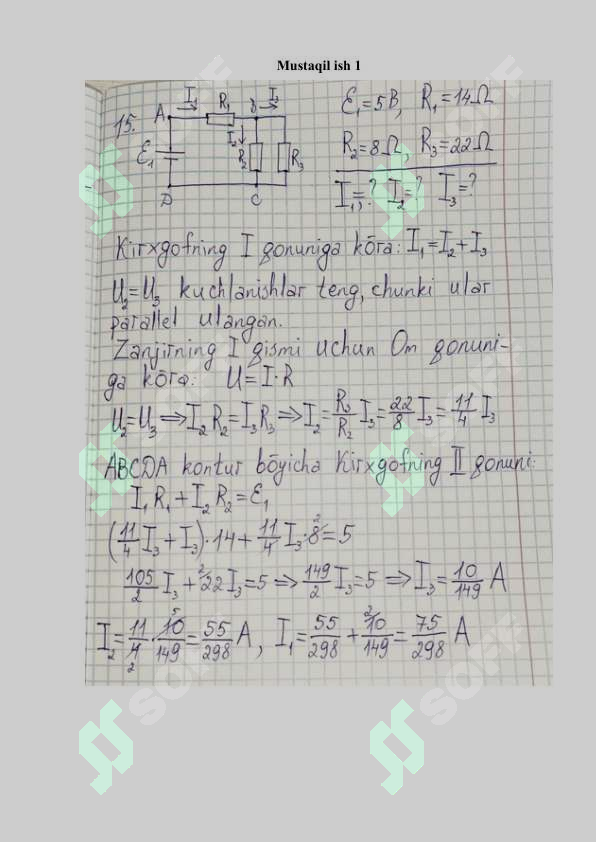 Mustaqil ish 1
15. A I₁ R₁ B I₃
I₂ R₂ R₃
Ɛ₁
D C
Ɛ₁=5B, R₁=14Ω
R₂=8Ω, R₃=22Ω
I₁=? I₂=? I₃=?
Kirxgofning I qonuniga ko̅ra: I₁=I₂+I₃
U₂=U₃ kuchlanishlar teng, chunki ular
parallel ulangan.
Zanjirning I qismi uchun Om qonuni-
ga ko̅ra: U=I·R
U₂=U₃ ⟹ I₂R₂=I₃R₃ ⟹ I₂=R₃/R₂ I₃=22/8 I₃=11/4 I₃
ABCDA kontur bo̅yicha Kirxgofning II qonuni:
I₁R₁+I₂R₂=Ɛ₁
(11/4 I₃+I₃)·14+11/4 I₃·8 2=5
105/2 I₃+2 22I₃=5 ⟹ 149/2 I₃=5 ⟹ I₃=10/149 A
I₂=11/4 2·10 5/149=55/298 A, I₁=55/298+2 10/149=75/298 A
SOFF
SOFF
SOFF
SOFF
SOFF
SOFF